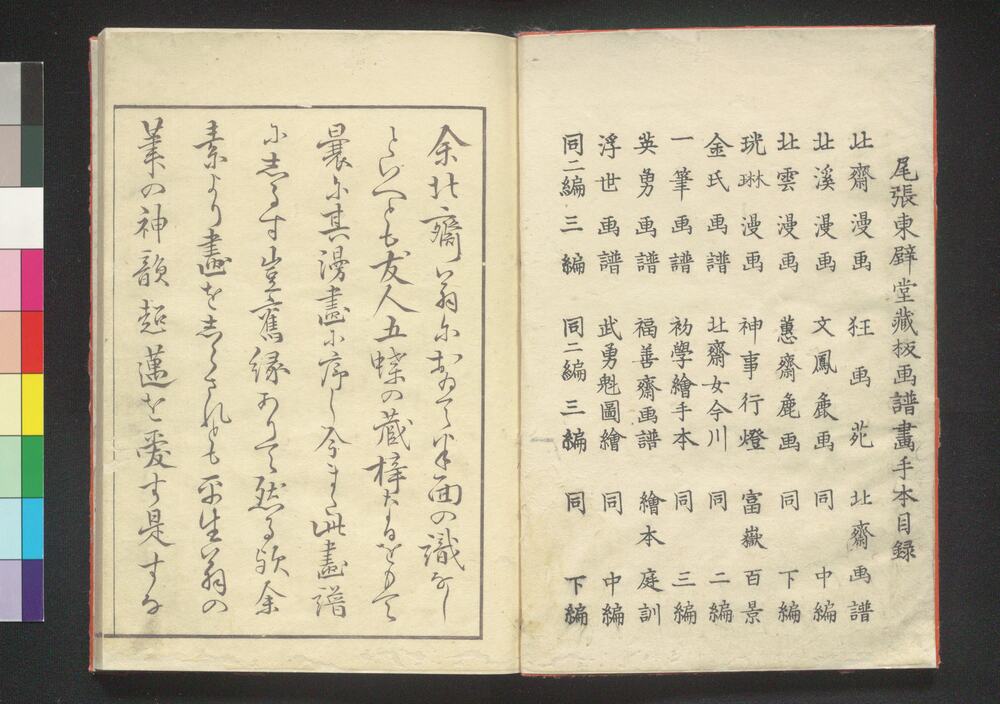 尾張東壁堂藏板画譜畫手本目録
北齋漫画 狂画苑 北齋画譜
北溪漫画 文鳳麁画 同 中編
北雲漫画 蕙齋麁画 同 下編
珖琳漫画 神事行燈 富嶽百景
金氏画譜 北齋女今川 同 二編
一筆画譜 初學繪手本 同 三編
英勇画譜 福善齋画譜 繪本庭訓
浮世画譜 武勇魁圖繪 同 中編
同二編三編 同二編三編 同 下編
余北齋翁におゐて半面の識なし
といへとも友人五蝶の蔵梓たるをもて
曩に其漫畫に序し今また此畫譜
にしるす豈舊縁ありて黙る歟余
素より畫をしらされとも平生翁の
筆の神韻超邁を愛す是する